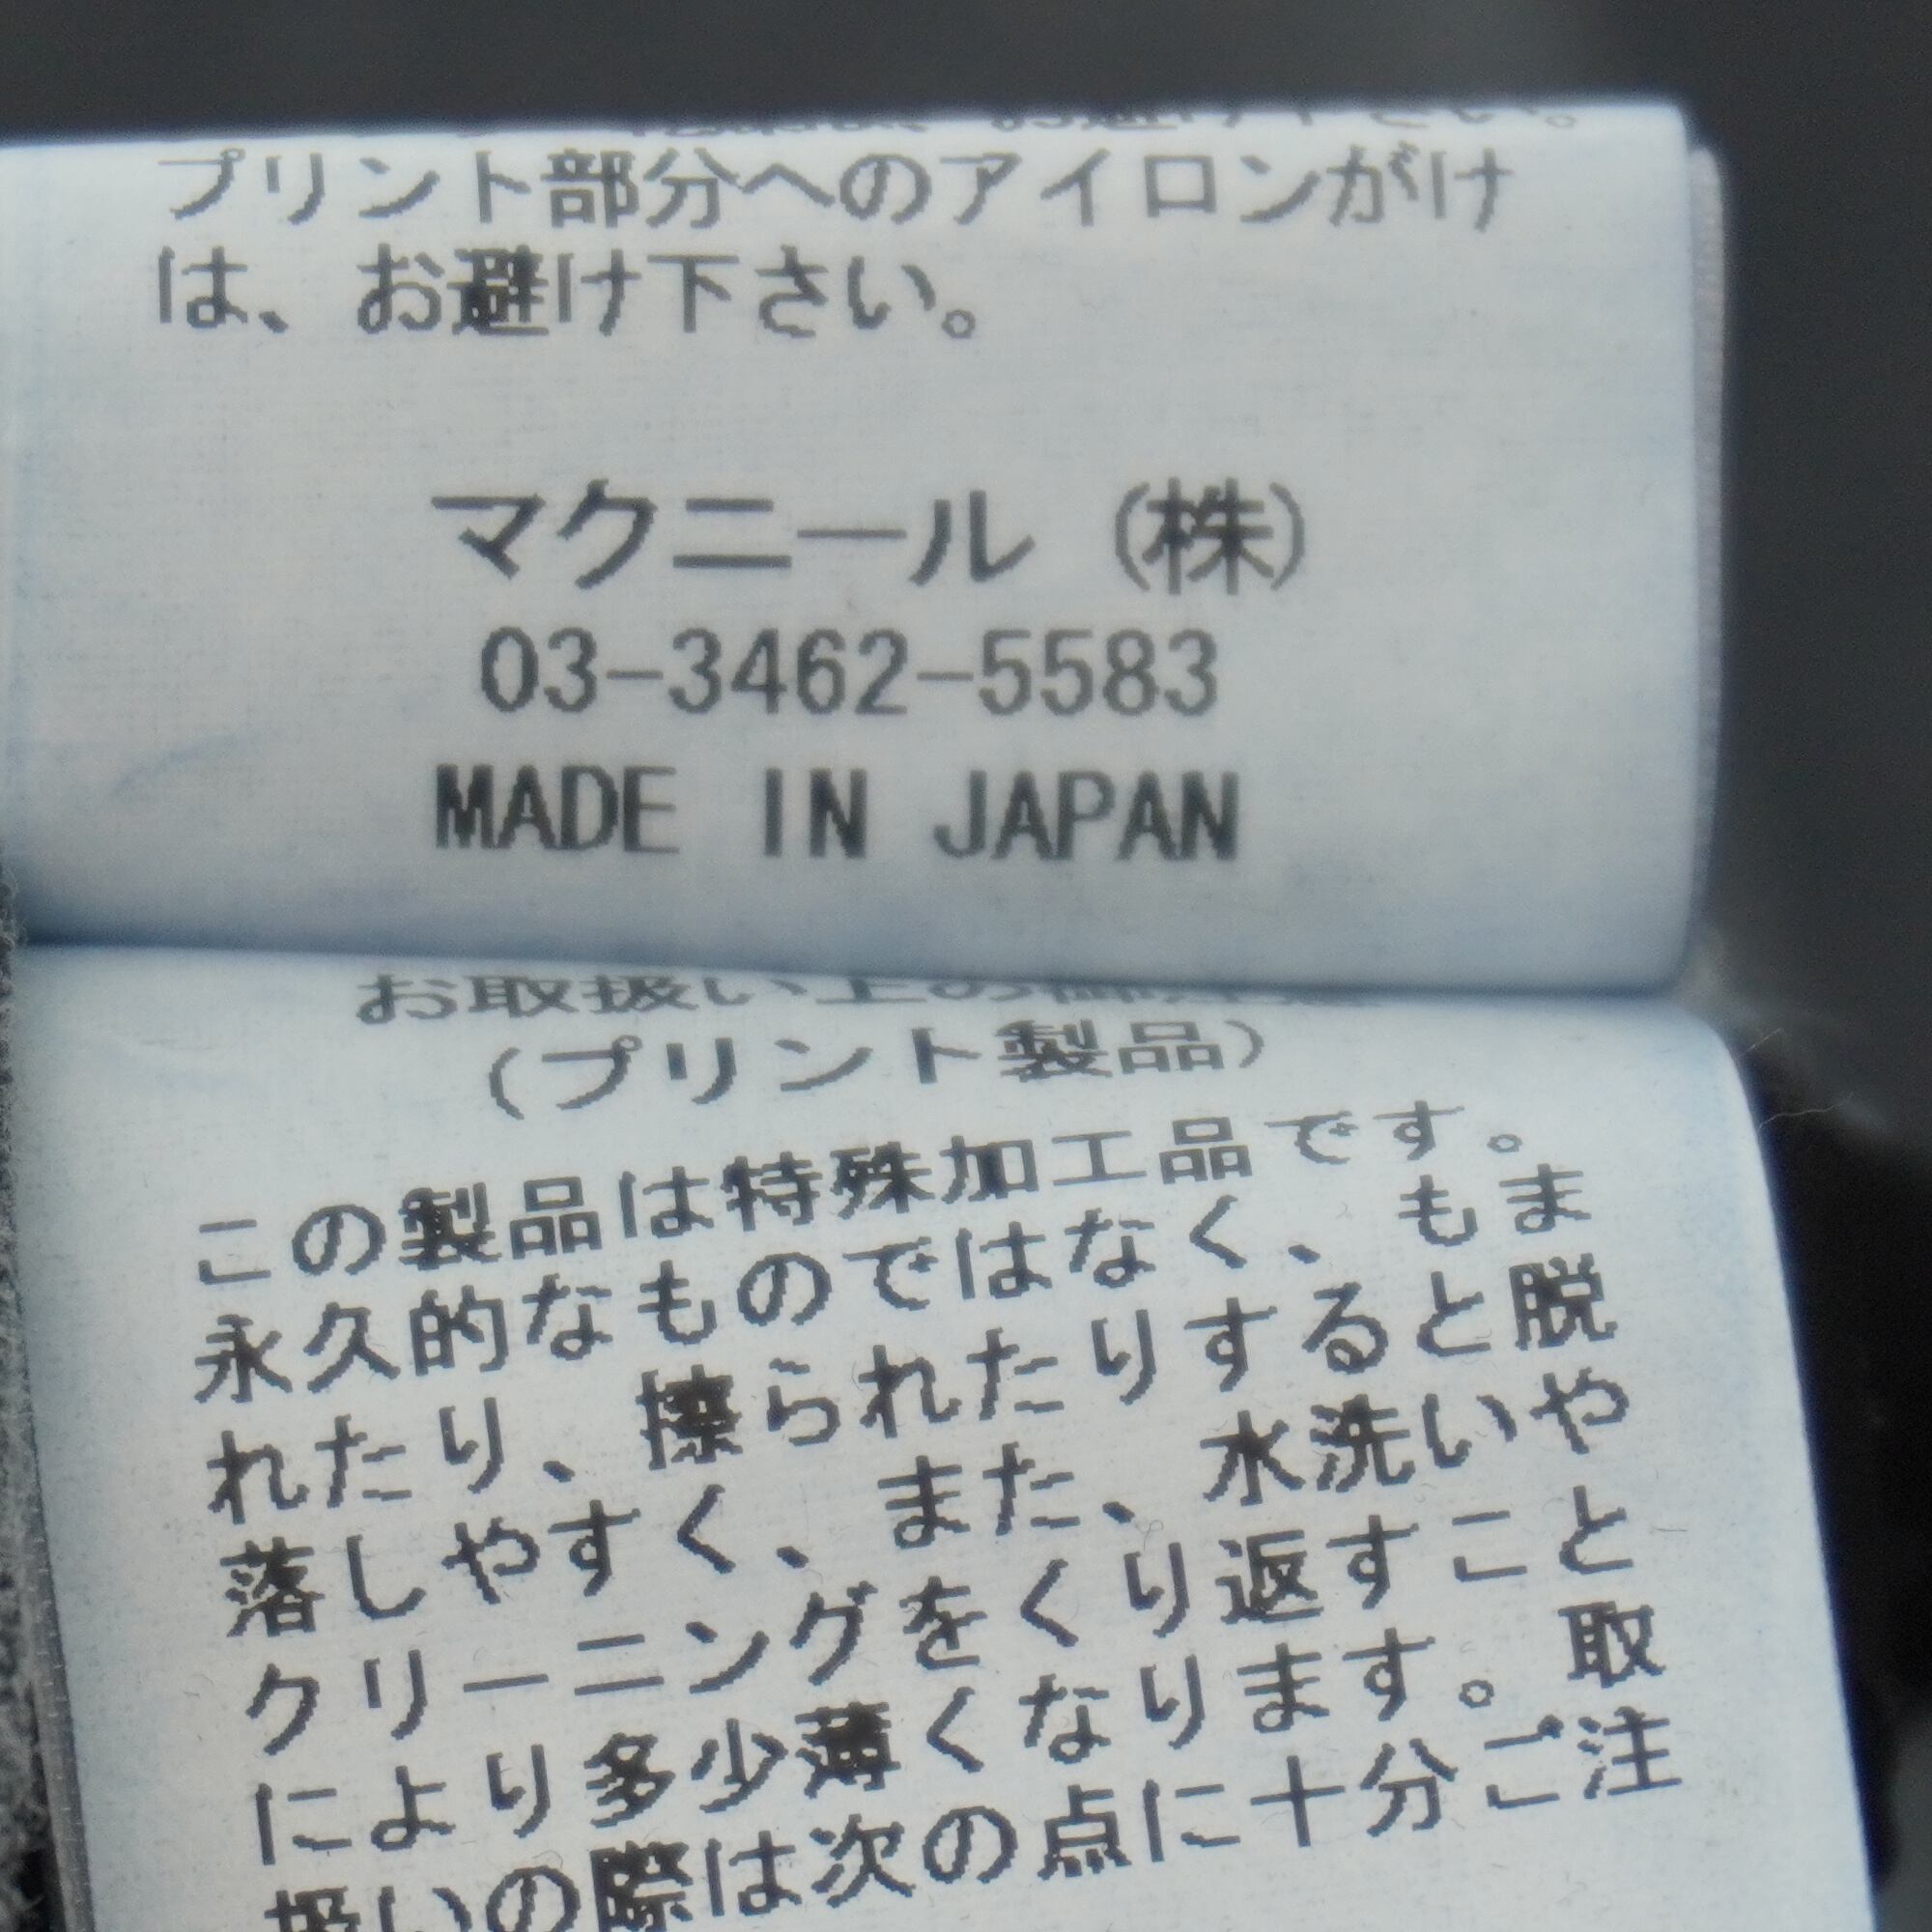 お避け下さい。
プリント部分へのアイロンがけ
は、お避け下さい。
マクニール (株)
03-3462-5583
MADE IN JAPAN
お取扱い上の
(プリント製品)
この製品は特殊加工品です。
永久的なものではなく、もま
れたり、擦られたりすると脱
落しやすく、また、水洗いや
クリーニングをくり返すこと
により多少薄くなります。取
扱いの際は次の点に十分ご注